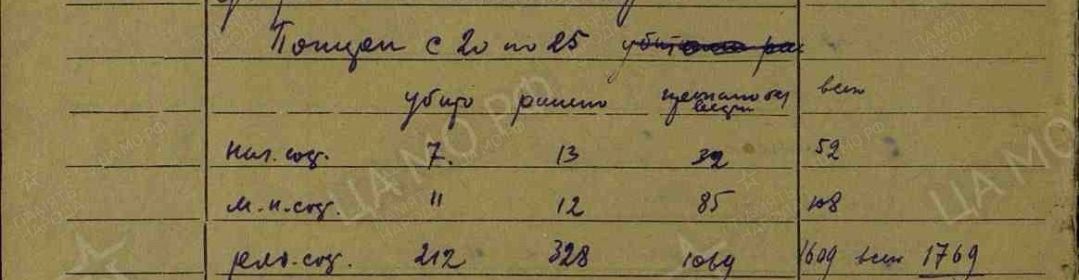 Потери с 20 по 25
убито ранено пропало без вести всего
нач. сост. 7. 13 32 52
м.н.сост. 11 12 85 108
ряд. сост. 212 328 1069 1609 всего 1769